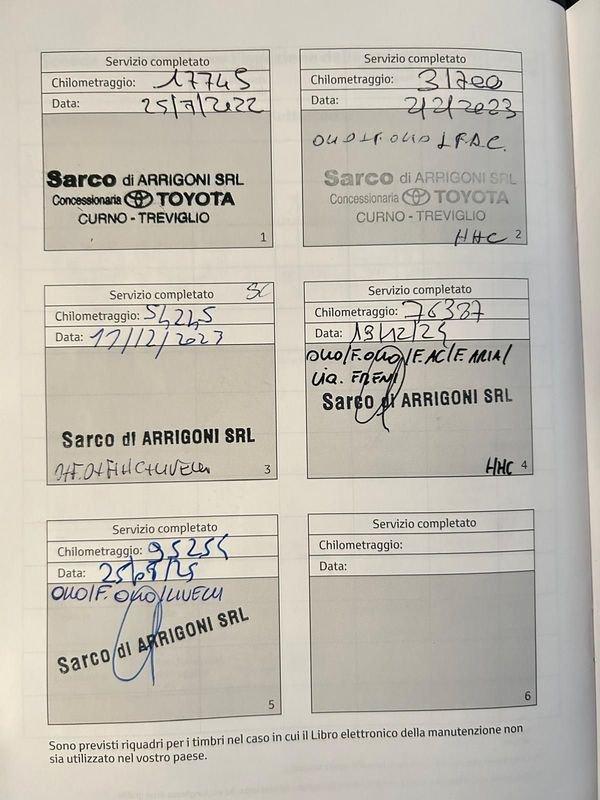 Servizio completato
Chilometraggio: 17745
Data: 25/7/2022
Sarco di ARRIGONI SRL
Concessionaria TOYOTA
CURNO - TREVIGLIO
1
Servizio completato
Chilometraggio: 31700
Data: 2/2/2023
OLIO + F.OLIO + F.A.C.
Sarco di ARRIGONI SRL
Concessionaria TOYOTA
CURNO - TREVIGLIO
HHC 2
Servizio completato
Chilometraggio: 54245
Data: 11/12/2023
Sarco di ARRIGONI SRL
3
Servizio completato
Chilometraggio: 76387
Data: 19/12/24
OLIO/F.OLIO/F.AC/F.ARIA/
LIQ. FRENI
Sarco di ARRIGONI SRL
HHC 4
Servizio completato
Chilometraggio: 95254
Data: 25/09/25
OLIO/F.OLIO/LIVELLI
Sarco di ARRIGONI SRL
5
Servizio completato
Chilometraggio:
Data:
6
Sono previsti riquadri per i timbri nel caso in cui il Libro elettronico della manutenzione non
sia utilizzato nel vostro paese.